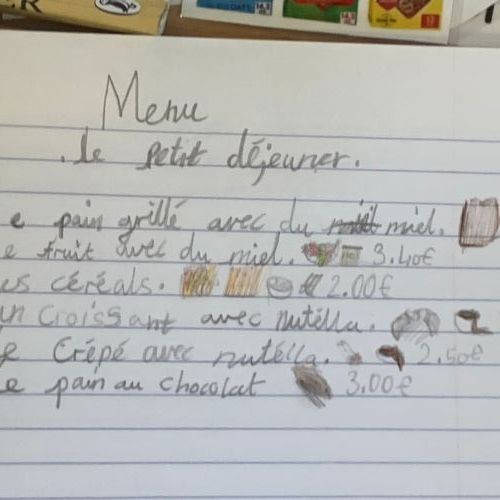 Menu
le petit déjeuner.
e pain grillé avec du miel.
e fruit avec du miel. 3.40€
es céréals. 2.00€
un Croissant avec nutélla.
e Crépé avec nutélla. 2.50€
e pain au chocolat 3.00€